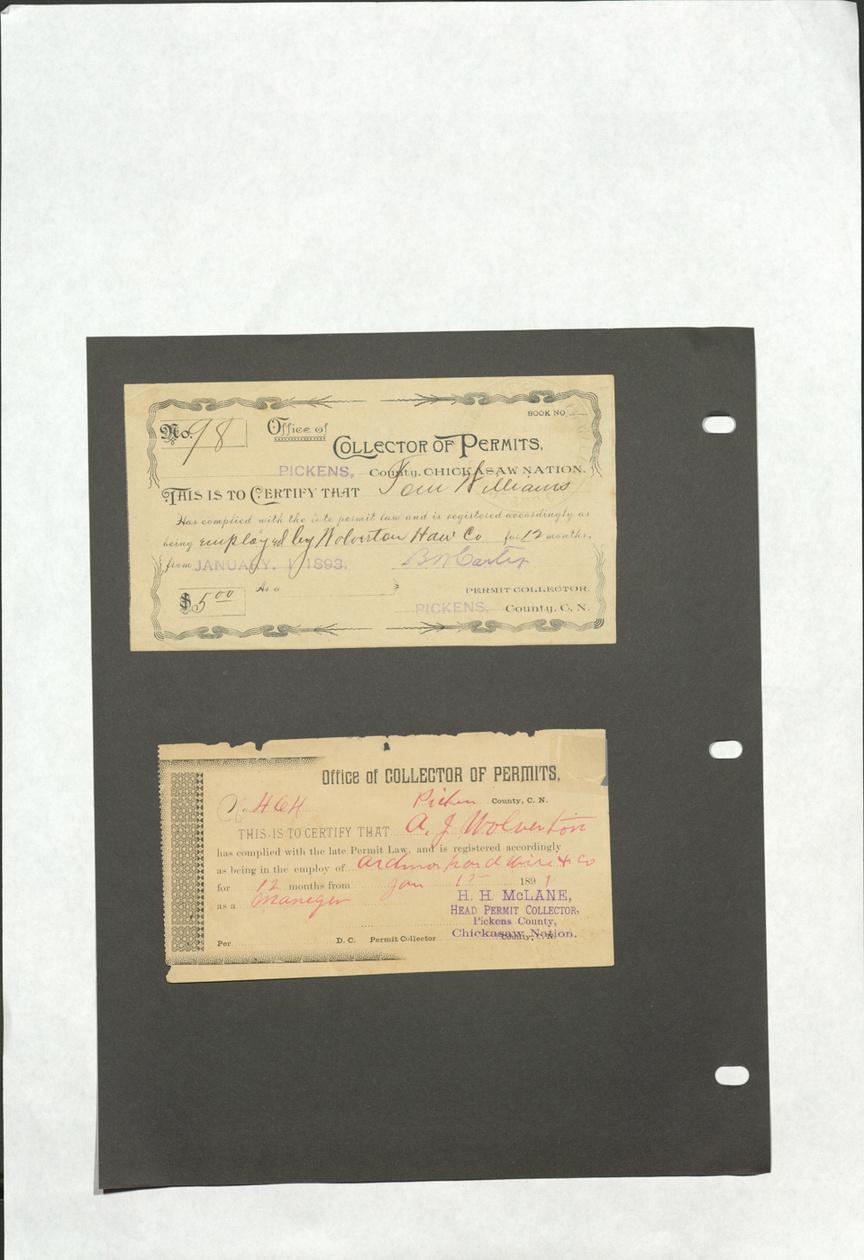 BOOK NO
No. 98
Office of
COLLECTOR OF PERMITS,
PICKENS, County, CHICKASAW NATION.
THIS IS TO CERTIFY THAT Tom Williams
Has complied with the late permit law and is registered accordingly as
being employed by Wolverton Haw Co for 12 months,
from JANUARY, 1 1893.
As a
PERMIT COLLECTOR
$5 00
PICKENS, County, C. N.
Office of COLLECTOR OF PERMITS,
No 464 Picken County, C. N.
THIS IS TO CERTIFY THAT A. J. Wolverton
has complied with the late Permit Law, and is registered accordingly
as being in the employ of Ardmor hardwire & Co
for 12 months from Jan 15 1891
as a Maneger
H. H. McLANE,
HEAD PERMIT COLLECTOR,
Pickens County,
Chickasaw Nation.
Per D. C. Permit Collector County, C. N.